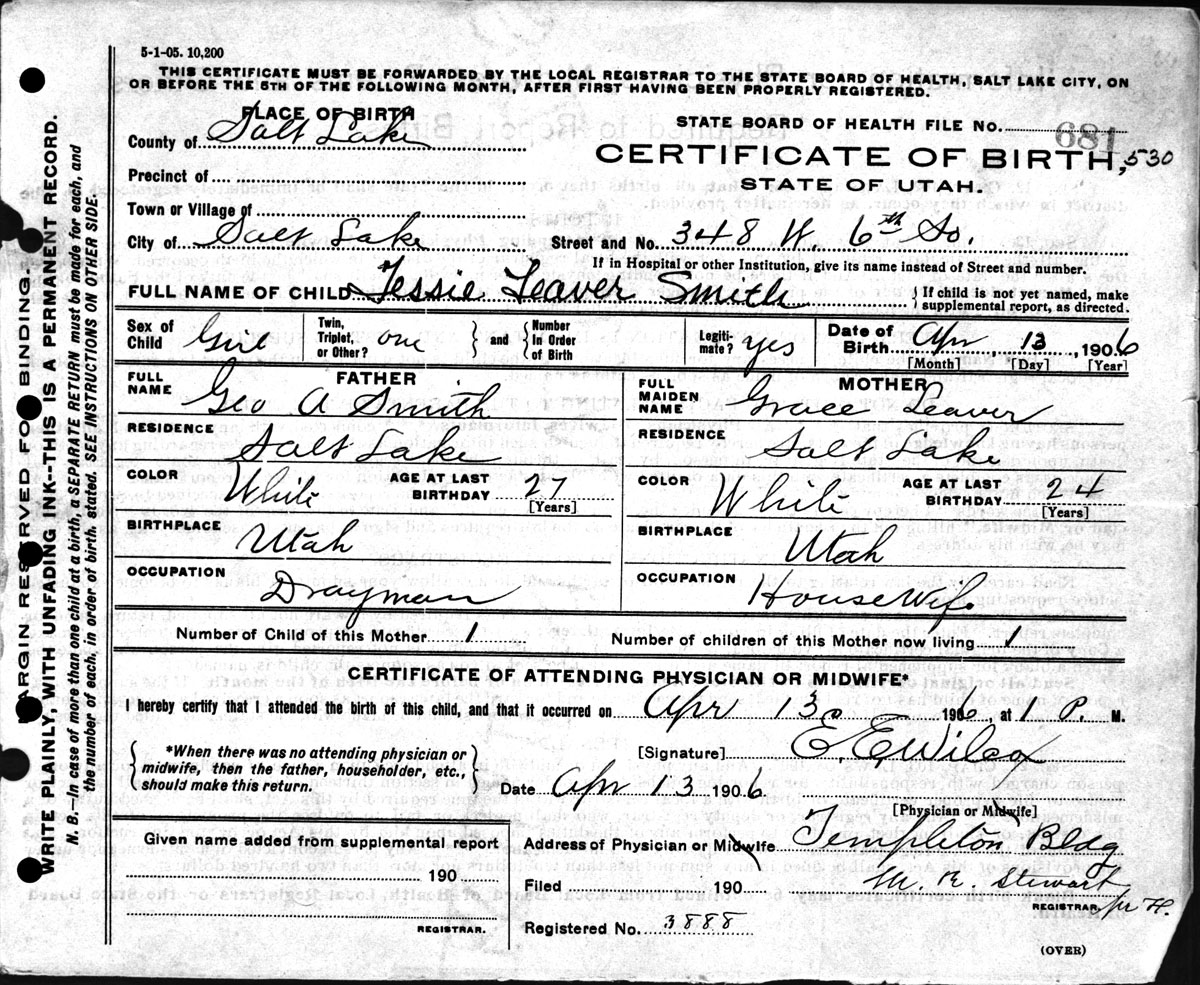 5-1-05. 10,200
THIS CERTIFICATE MUST BE FORWARDED BY THE LOCAL REGISTRAR TO THE STATE BOARD OF HEALTH, SALT LAKE CITY, ON
OR BEFORE THE 5TH OF THE FOLLOWING MONTH, AFTER FIRST HAVING BEEN PROPERLY REGISTERED.
PLACE OF BIRTH
County of Salt Lake
STATE BOARD OF HEALTH FILE No. 681
CERTIFICATE OF BIRTH, 530
Precinct of
STATE OF UTAH.
Town or Village of
City of Salt Lake Street and No. 348 W. 6th So.
If in Hospital or other Institution, give its name instead of Street and number.
FULL NAME OF CHILD Tessie Leaver Smith { If child is not yet named, make supplemental report, as directed.
Sex of Child Girl Twin, Triplet, or Other? one } and { Number In Order of Birth Legiti- mate? yes Date of Birth Apr 13, 1906
[Month] [Day] [Year]
FATHER MOTHER
FULL NAME Geo A Smith FULL MAIDEN NAME Grace Leaver
RESIDENCE Salt Lake RESIDENCE Salt Lake
COLOR White AGE AT LAST BIRTHDAY 27 [Years] COLOR White AGE AT LAST BIRTHDAY 24 [Years]
BIRTHPLACE Utah BIRTHPLACE Utah
OCCUPATION Drayman OCCUPATION HouseWife
Number of Child of this Mother 1 Number of children of this Mother now living 1
CERTIFICATE OF ATTENDING PHYSICIAN OR MIDWIFE*
I hereby certify that I attended the birth of this child, and that it occurred on Apr 13 1906, at 1 P. M.
{ *When there was no attending physician or midwife, then the father, householder, etc., should make this return. }
[Signature] E. E. Wilcox
Date Apr 13 1906
[Physician or Midwife]
Given name added from supplemental report
190
REGISTRAR.
Address of Physician or Midwife Templeton Bldg
Filed 190 M. R. Stewart
REGISTRAR. pr H.
Registered No. 3888
(OVER)
MARGIN RESERVED FOR BINDING.
WRITE PLAINLY, WITH UNFADING INK--THIS IS A PERMANENT RECORD.
N. B. In case of more than one child at a birth, a SEPARATE RETURN must be made for each, and
the number of each, in order of birth, stated. SEE INSTRUCTIONS ON OTHER SIDE.